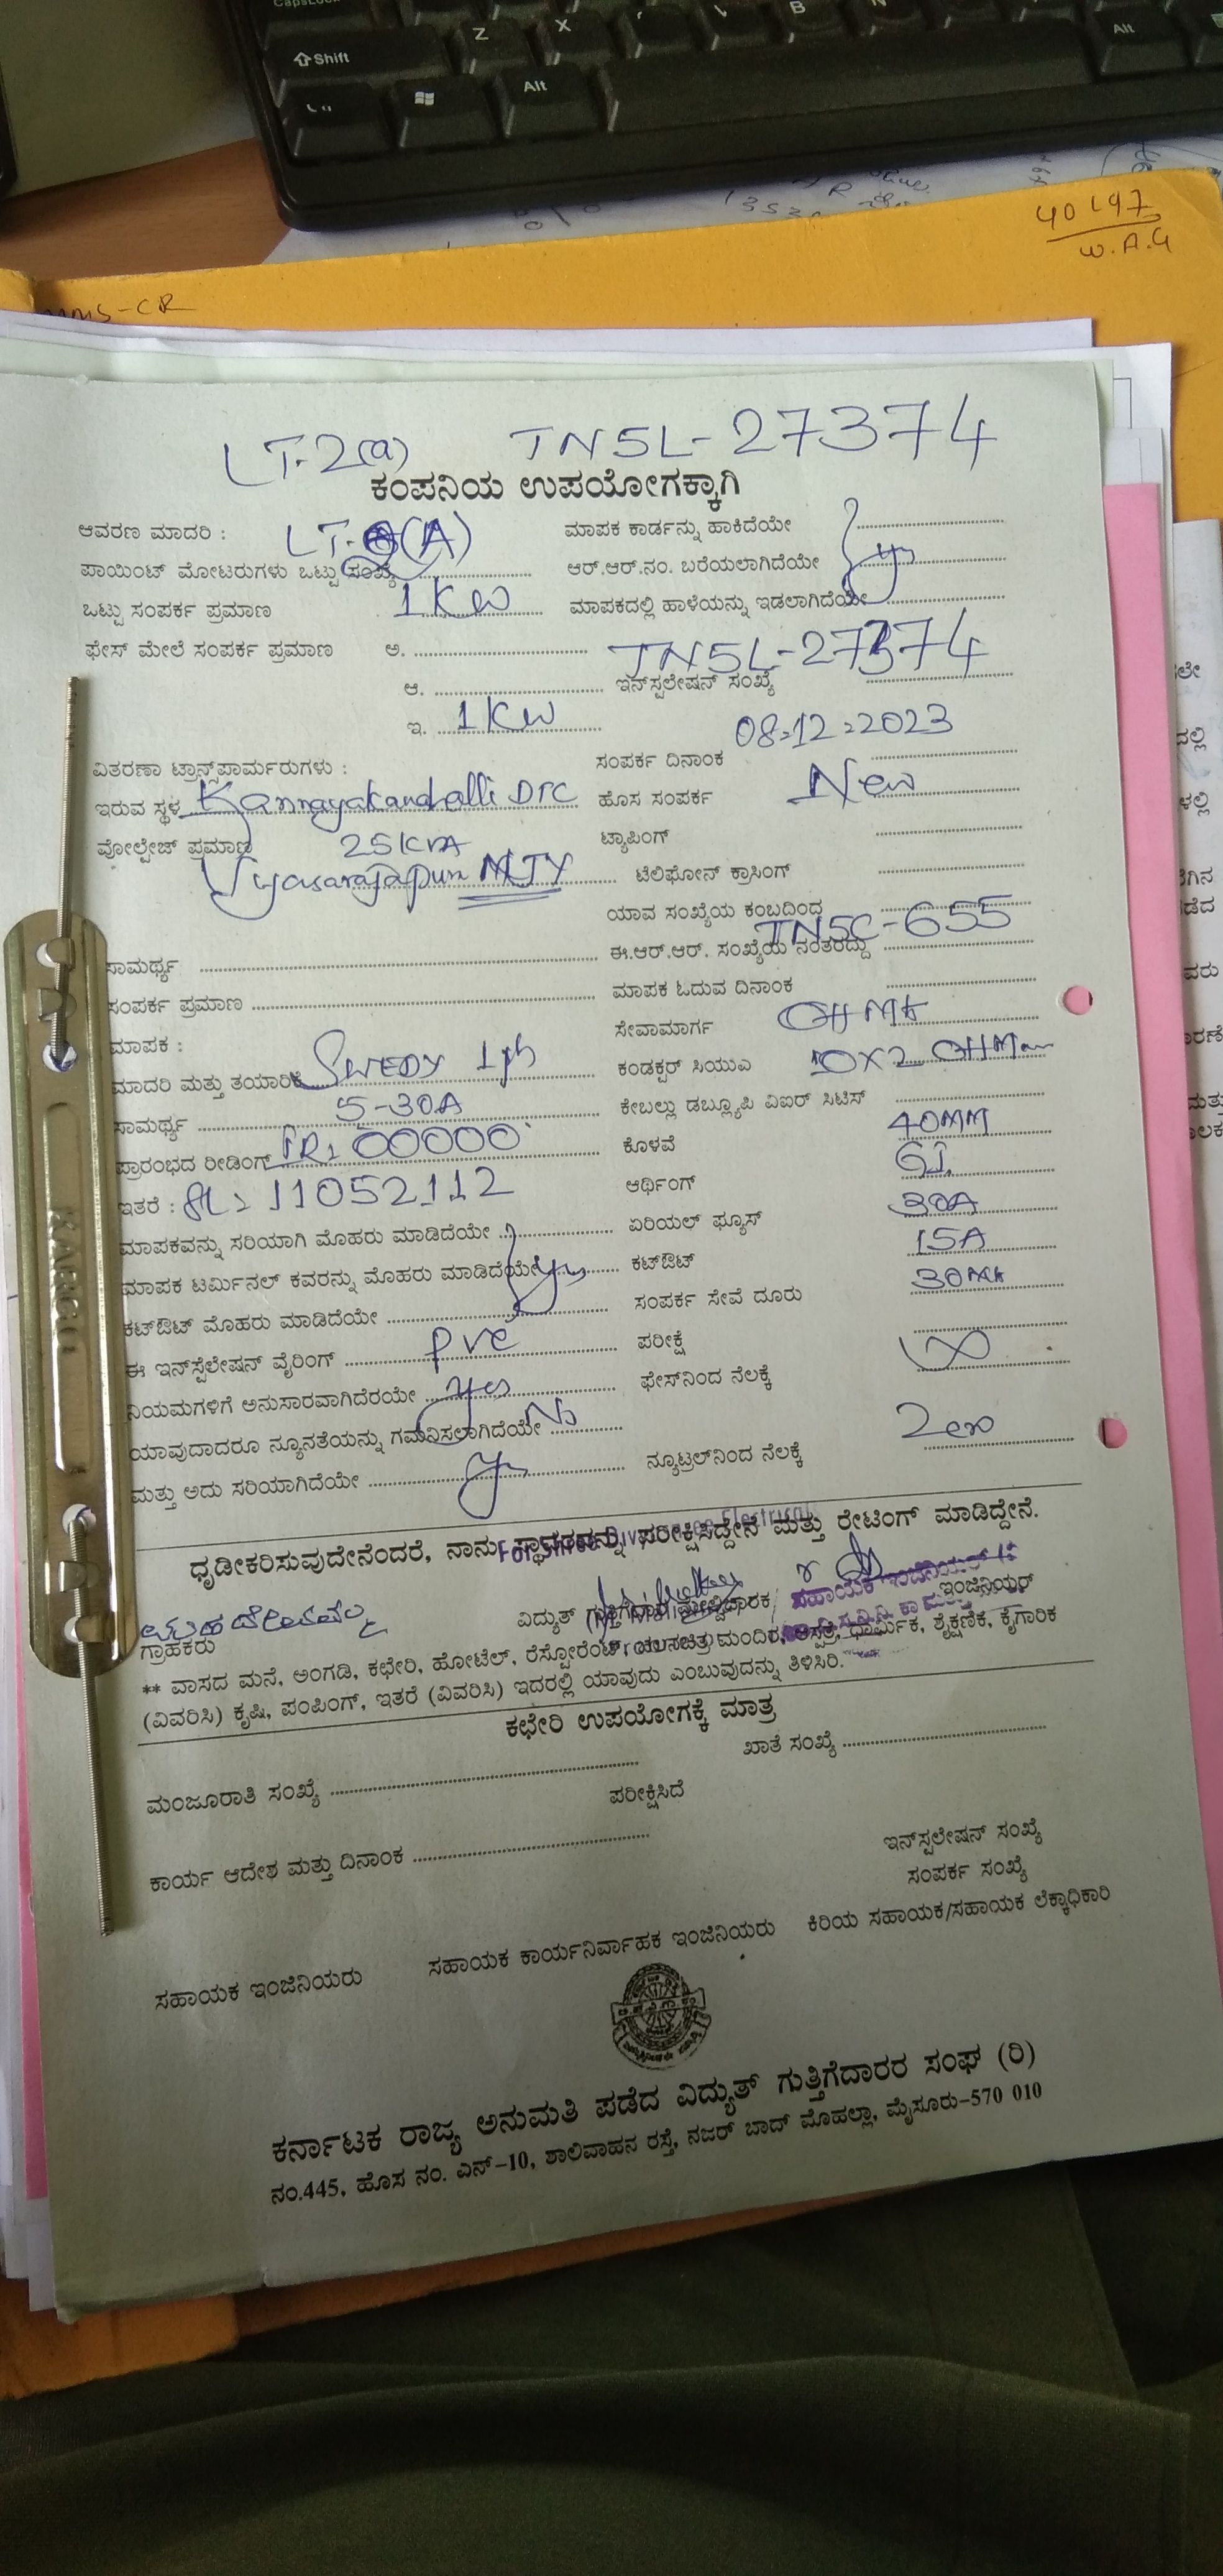 Shift
Z X B N
Alt Alt
40197
W.A.G
MMS-CR
LT-2(a) TN5L-27374
ಕಂಪನಿಯ ಉಪಯೋಗಕ್ಕಾಗಿ
ಆವರಣ ಮಾದರಿ : LT- (A) ಮಾಪಕ ಕಾರ್ಡನ್ನು ಹಾಕಿದೆಯೇ
ಪಾಯಿಂಟ್ ಮೋಟರುಗಳು ಒಟ್ಟು ಸಂಖ್ಯೆ ಆರ್.ಆರ್.ನಂ. ಬರೆಯಲಾಗಿದೆಯೇ
ಒಟ್ಟು ಸಂಪರ್ಕ ಪ್ರಮಾಣ 1 KW ಮಾಪಕದಲ್ಲಿ ಹಾಳೆಯನ್ನು ಇಡಲಾಗಿದೆಯೇ
ಫೇಸ್ ಮೇಲೆ ಸಂಪರ್ಕ ಪ್ರಮಾಣ ಅ. TN5L-27374
ಆ. ಇನ್‌ಸ್ಪಲೇಷನ್ ಸಂಖ್ಯೆ
ಇ. 1 KW 08-12-2023
ವಿತರಣಾ ಟ್ರಾನ್ಸ್‌ಫಾರ್ಮರುಗಳು : ಸಂಪರ್ಕ ದಿನಾಂಕ
ಇರುವ ಸ್ಥಳ Kannayakanahalli DTC ಹೊಸ ಸಂಪರ್ಕ New
ವೋಲ್ಟೇಜ್ ಪ್ರಮಾಣ 25KVA ಟ್ಯಾಪಿಂಗ್
Vyasarajapura NJY ಟೆಲಿಫೋನ್ ಕ್ರಾಸಿಂಗ್
ಯಾವ ಸಂಖ್ಯೆಯ ಕಂಬದಿಂದ
ಸಾಮರ್ಥ್ಯ ಈ.ಆರ್.ಆರ್. ಸಂಖ್ಯೆಯ ನಂತರದ್ದು TN5C-655
ಸಂಪರ್ಕ ಪ್ರಮಾಣ ಮಾಪಕ ಓದುವ ದಿನಾಂಕ
ಮಾಪಕ : ಸೇವಾಮಾರ್ಗ
ಮಾದರಿ ಮತ್ತು ತಯಾರಿಕೆ SWEDY 1ph ಕಂಡಕ್ಟರ್ ಸಿಯುಎ 10X2
ಸಾಮರ್ಥ್ಯ 5-30A ಕೇಬಲ್ಲು ಡಬ್ಲ್ಯೂಪಿ ವಿಐರ್ ಸಿಟಿಸ್
ಪ್ರಾರಂಭದ ರೀಡಿಂಗ್ IR: 00000 ಕೊಳವೆ 40MM
ಇತರೆ : SL: 11052112 ಆರ್ಥಿಂಗ್ GI.
ಮಾಪಕವನ್ನು ಸರಿಯಾಗಿ ಮೊಹರು ಮಾಡಿದೆಯೇ ಏರಿಯಲ್ ಫ್ಯೂಸ್ 30A
ಮಾಪಕ ಟರ್ಮಿನಲ್ ಕವರನ್ನು ಮೊಹರು ಮಾಡಿದೆಯೇ ಕಟ್‌ಔಟ್ 15A
ಕಟ್‌ಔಟ್ ಮೊಹರು ಮಾಡಿದೆಯೇ ಸಂಪರ್ಕ ಸೇವೆ ದೂರು
ಈ ಇನ್‌ಸ್ಪೆಲೇಷನ್ ವೈರಿಂಗ್ PVC ಪರೀಕ್ಷೆ
ನಿಯಮಗಳಿಗೆ ಅನುಸಾರವಾಗಿದೆರಯೇ yes ಫೇಸ್‌ನಿಂದ ನೆಲಕ್ಕೆ
ಯಾವುದಾದರೂ ನ್ಯೂನತೆಯನ್ನು ಗಮನಿಸಲಾಗಿದೆಯೇ No
ಮತ್ತು ಅದು ಸರಿಯಾಗಿದೆಯೇ ನ್ಯೂಟ್ರಲ್‌ನಿಂದ ನೆಲಕ್ಕೆ Zero
ಧೃಡೀಕರಿಸುವುದೇನೆಂದರೆ, ನಾನು ಸ್ಥಾವರವನ್ನು ಪರೀಕ್ಷಿಸಿದ್ದೇನೆ ಮತ್ತು ರೇಟಿಂಗ್ ಮಾಡಿದ್ದೇನೆ.
ವಿದ್ಯುತ್ ಗುತ್ತಿಗೆದಾರ/ಮೇಲ್ವಿಚಾರಕ ಇಂಜಿನಿಯರ್
ಸಹಾಯಕ ಇಂಜಿನಿಯರ್
ಗ್ರಾಹಕರು
** ವಾಸದ ಮನೆ, ಅಂಗಡಿ, ಕಛೇರಿ, ಹೋಟೆಲ್, ರೆಸ್ಟೋರೆಂಟ್, ಚಲನಚಿತ್ರ ಮಂದಿರ, ಆಸ್ಪತ್ರೆ, ಧಾರ್ಮಿಕ, ಶೈಕ್ಷಣಿಕ, ಕೈಗಾರಿಕ
(ವಿವರಿಸಿ) ಕೃಷಿ, ಪಂಪಿಂಗ್, ಇತರೆ (ವಿವರಿಸಿ) ಇದರಲ್ಲಿ ಯಾವುದು ಎಂಬುವುದನ್ನು ತಿಳಿಸಿರಿ.
ಕಛೇರಿ ಉಪಯೋಗಕ್ಕೆ ಮಾತ್ರ
ಮಂಜೂರಾತಿ ಸಂಖ್ಯೆ ಖಾತೆ ಸಂಖ್ಯೆ
ಪರೀಕ್ಷಿಸಿದೆ
ಕಾರ್ಯ ಆದೇಶ ಮತ್ತು ದಿನಾಂಕ ಇನ್‌ಸ್ಪಲೇಷನ್ ಸಂಖ್ಯೆ
ಸಂಪರ್ಕ ಸಂಖ್ಯೆ
ಸಹಾಯಕ ಇಂಜಿನಿಯರು ಸಹಾಯಕ ಕಾರ್ಯನಿರ್ವಾಹಕ ಇಂಜಿನಿಯರು ಕಿರಿಯ ಸಹಾಯಕ/ಸಹಾಯಕ ಲೆಕ್ಕಾಧಿಕಾರಿ
ಕರ್ನಾಟಕ ರಾಜ್ಯ ಅನುಮತಿ ಪಡೆದ ವಿದ್ಯುತ್ ಗುತ್ತಿಗೆದಾರರ ಸಂಘ (ರಿ)
ನಂ.445, ಹೊಸ ನಂ. ಎನ್-10, ಶಾಲಿವಾಹನ ರಸ್ತೆ, ನಜರ್ ಬಾದ್ ಮೊಹಲ್ಲಾ, ಮೈಸೂರು-570 010